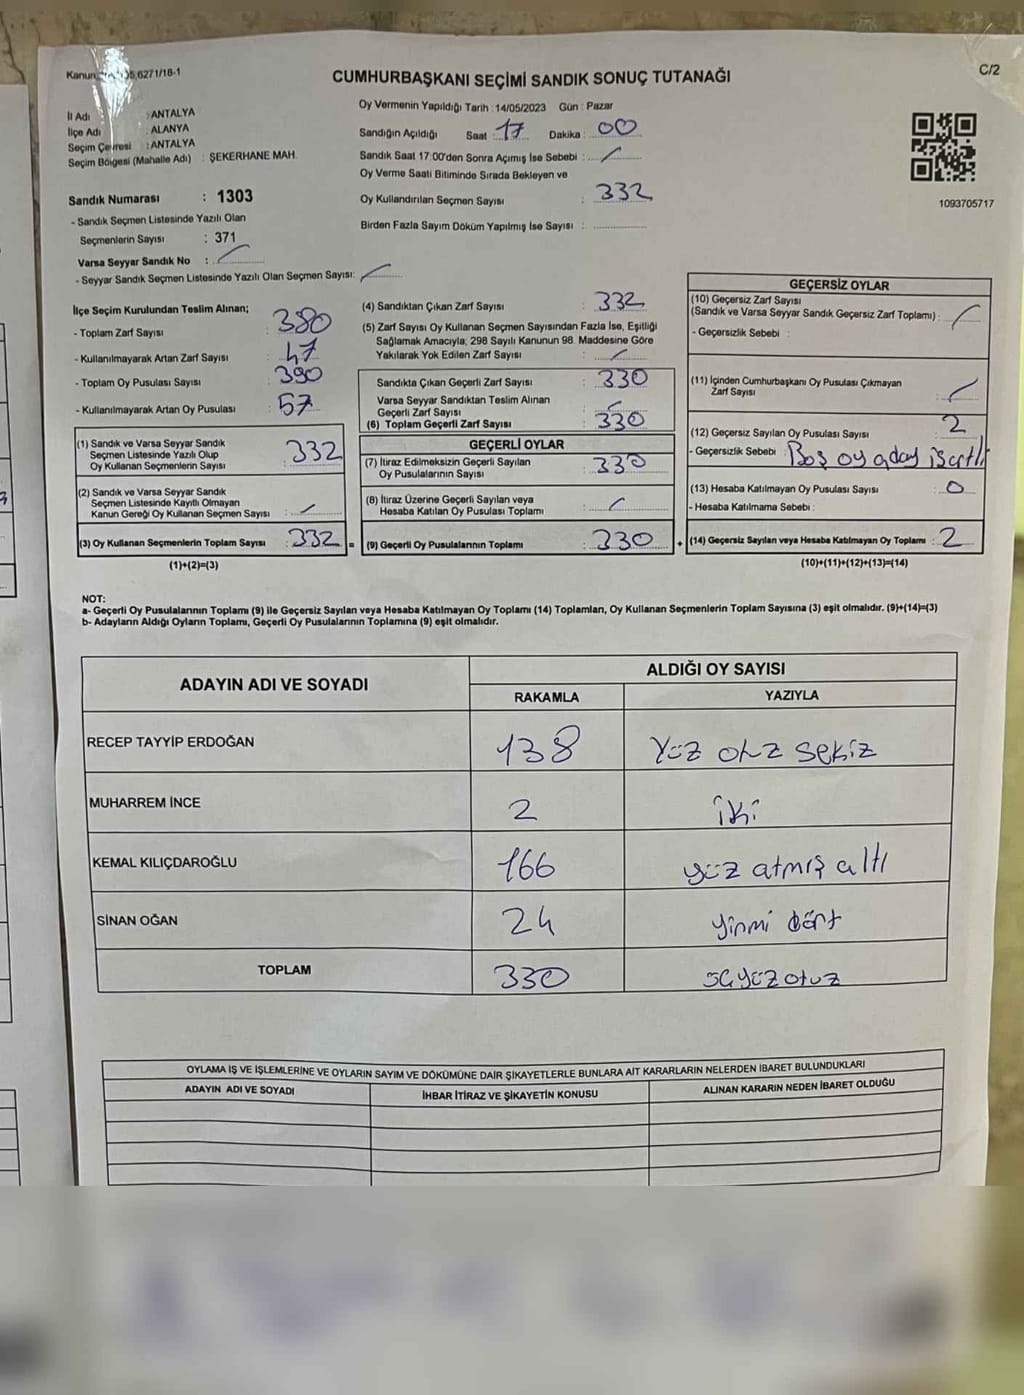 Kanun 6271/18-1
C/2
CUMHURBAŞKANI SEÇİMİ SANDIK SONUÇ TUTANAĞI
İl Adı : ANTALYA
İlçe Adı : ALANYA
Seçim Çevresi : ANTALYA
Seçim Bölgesi (Mahalle Adı) : ŞEKERHANE MAH.
Sandık Numarası : 1303
- Sandık Seçmen Listesinde Yazılı Olan
Seçmenlerin Sayısı : 371
Varsa Seyyar Sandık No :
- Seyyar Sandık Seçmen Listesinde Yazılı Olan Seçmen Sayısı:
Oy Vermenin Yapıldığı Tarih : 14/05/2023 Gün : Pazar
Sandığın Açıldığı Saat : 17 Dakika : 00
Sandık Saat 17:00'den Sonra Açımış İse Sebebi :
Oy Verme Saati Bitiminde Sırada Bekleyen ve
Oy Kullandırılan Seçmen Sayısı : 332
Birden Fazla Sayım Döküm Yapılmış İse Sayısı :
1093705717
İlçe Seçim Kurulundan Teslim Alınan;
- Toplam Zarf Sayısı : 380
- Kullanılmayarak Artan Zarf Sayısı : 47
- Toplam Oy Pusulası Sayısı : 390
- Kullanılmayarak Artan Oy Pusulası : 57
(1) Sandık ve Varsa Seyyar Sandık
Seçmen Listesinde Yazılı Olup
Oy Kullanan Seçmenlerin Sayısı : 332
(2) Sandık ve Varsa Seyyar Sandık
Seçmen Listesinde Kayıtlı Olmayan
Kanun Gereği Oy Kullanan Seçmen Sayısı :
(3) Oy Kullanan Seçmenlerin Toplam Sayısı : 332 =
(1)+(2)=(3)
(4) Sandıktan Çıkan Zarf Sayısı : 332
(5) Zarf Sayısı Oy Kullanan Seçmen Sayısından Fazla İse, Eşitliği
Sağlamak Amacıyla, 298 Sayılı Kanunun 98. Maddesine Göre
Yakılarak Yok Edilen Zarf Sayısı :
Sandıkta Çıkan Geçerli Zarf Sayısı : 330
Varsa Seyyar Sandıktan Teslim Alınan
Geçerli Zarf Sayısı :
(6) Toplam Geçerli Zarf Sayısı : 330
GEÇERLİ OYLAR
(7) İtiraz Edilmeksizin Geçerli Sayılan
Oy Pusulalarının Sayısı : 330
(8) İtiraz Üzerine Geçerli Sayılan veya
Hesaba Katılan Oy Pusulası Toplamı :
(9) Geçerli Oy Pusulalarının Toplamı : 330 +
GEÇERSİZ OYLAR
(10) Geçersiz Zarf Sayısı
(Sandık ve Varsa Seyyar Sandık Geçersiz Zarf Toplamı) :
- Geçersizlik Sebebi :
(11) İçinden Cumhurbaşkanı Oy Pusulası Çıkmayan
Zarf Sayısı :
(12) Geçersiz Sayılan Oy Pusulası Sayısı : 2
- Geçersizlik Sebebi : Boş oy aday işartlı
(13) Hesaba Katılmayan Oy Pusulası Sayısı : 0
- Hesaba Katılmama Sebebi :
(14) Geçersiz Sayılan veya Hesaba Katılmayan Oy Toplamı : 2
(10)+(11)+(12)+(13)=(14)
NOT:
a- Geçerli Oy Pusulalarının Toplamı (9) ile Geçersiz Sayılan veya Hesaba Katılmayan Oy Toplamı (14) Toplamları, Oy Kullanan Seçmenlerin Toplam Sayısına (3) eşit olmalıdır. (9)+(14)=(3)
b- Adayların Aldığı Oyların Toplamı, Geçerli Oy Pusulalarının Toplamına (9) eşit olmalıdır.
ADAYIN ADI VE SOYADI
ALDIĞI OY SAYISI
RAKAMLA YAZIYLA
RECEP TAYYİP ERDOĞAN 138 Yüz otuz sekiz
MUHARREM İNCE 2 iki
KEMAL KILIÇDAROĞLU 166 yüz atmış altı
SİNAN OĞAN 24 yirmi dört
TOPLAM 330 üçyüz otuz
OYLAMA İŞ VE İŞLEMLERİNE VE OYLARIN SAYIM VE DÖKÜMÜNE DAİR ŞİKAYETLERLE BUNLARA AİT KARARLARIN NELERDEN İBARET BULUNDUKLARI
ADAYIN ADI VE SOYADI İHBAR İTİRAZ VE ŞİKAYETİN KONUSU ALINAN KARARIN NEDEN İBARET OLDUĞU